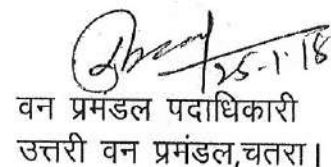 25-1-18
वन प्रमडल पदाधिकारी
उत्तरी वन प्रमंडल,चतरा।